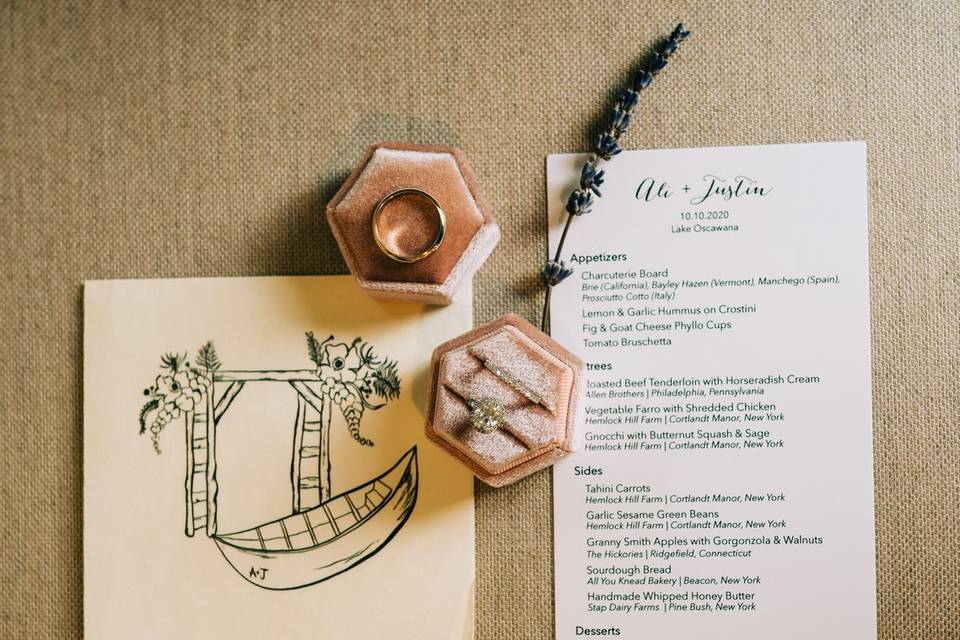 Ali + Justin
10.10.2020
Lake Oscawana
Appetizers
Charcuterie Board
Brie (California), Bayley Hazen (Vermont), Manchego (Spain),
Prosciutto Cotto (Italy)
Lemon & Garlic Hummus on Crostini
Fig & Goat Cheese Phyllo Cups
Tomato Bruschetta
trees
Roasted Beef Tenderloin with Horseradish Cream
Allen Brothers | Philadelphia, Pennsylvania
Vegetable Farro with Shredded Chicken
Hemlock Hill Farm | Cortlandt Manor, New York
Gnocchi with Butternut Squash & Sage
Hemlock Hill Farm | Cortlandt Manor, New York
Sides
Tahini Carrots
Hemlock Hill Farm | Cortlandt Manor, New York
Garlic Sesame Green Beans
Hemlock Hill Farm | Cortlandt Manor, New York
Granny Smith Apples with Gorgonzola & Walnuts
The Hickories | Ridgefield, Connecticut
Sourdough Bread
All You Knead Bakery | Beacon, New York
Handmade Whipped Honey Butter
Stap Dairy Farms | Pine Bush, New York
Desserts
A+J